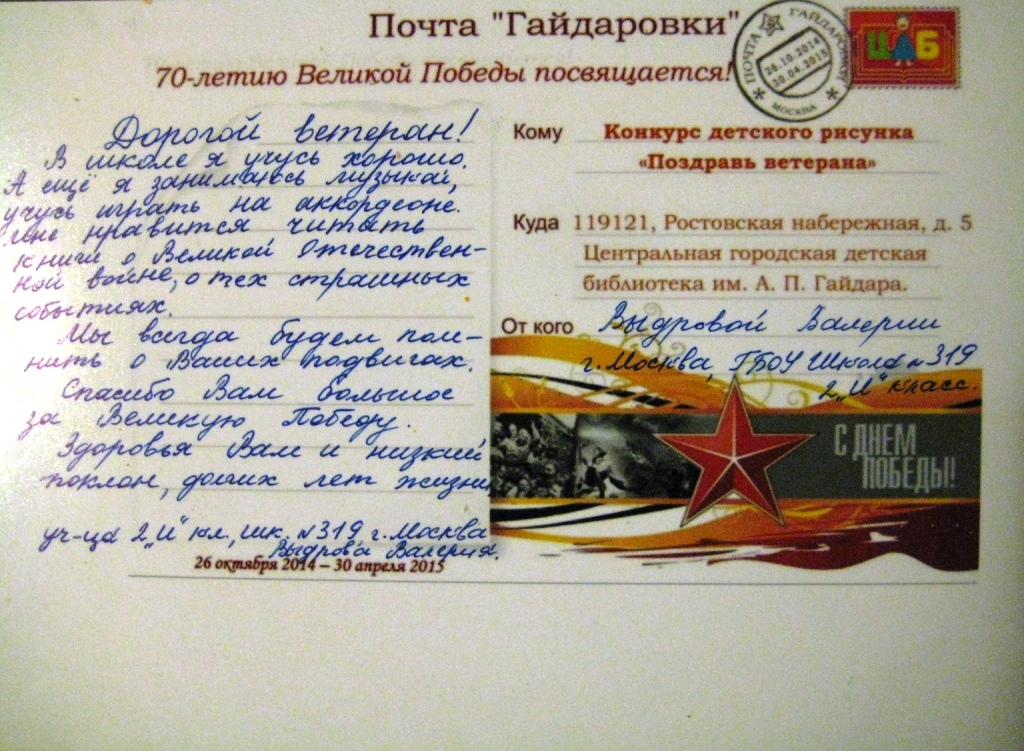 Почта "Гайдаровки"
70-летию Великой Победы посвящается!
ПОЧТА ГАЙДАРОВКИ
26.10.2014
30.04.2015
МОСКВА
ЦДБ
Дорогой ветеран!
В школе я учусь хорошо.
А ещё я занимаюсь музыкой,
учусь играть на аккордеоне.
Мне нравится читать
книги о Великой Отечествен-
ной войне, о тех страшных
событиях.
Мы всегда будем пом-
нить о Ваших подвигах.
Спасибо Вам большое
за Великую Победу.
Здоровья Вам и низкий
поклон, долгих лет жизни
уч-ца 2 „И" кл., шк. №319 г. Москва
Выдрова Валерия.
26 октября 2014 – 30 апреля 2015
Кому Конкурс детского рисунка
«Поздравь ветерана»
Куда 119121, Ростовская набережная, д. 5
Центральная городская детская
библиотека им. А. П. Гайдара.
От кого Выдровой Валерии
г. Москва, ГБОУ Школа №319
2 „И" класс.
С ДНЕМ
ПОБЕДЫ!